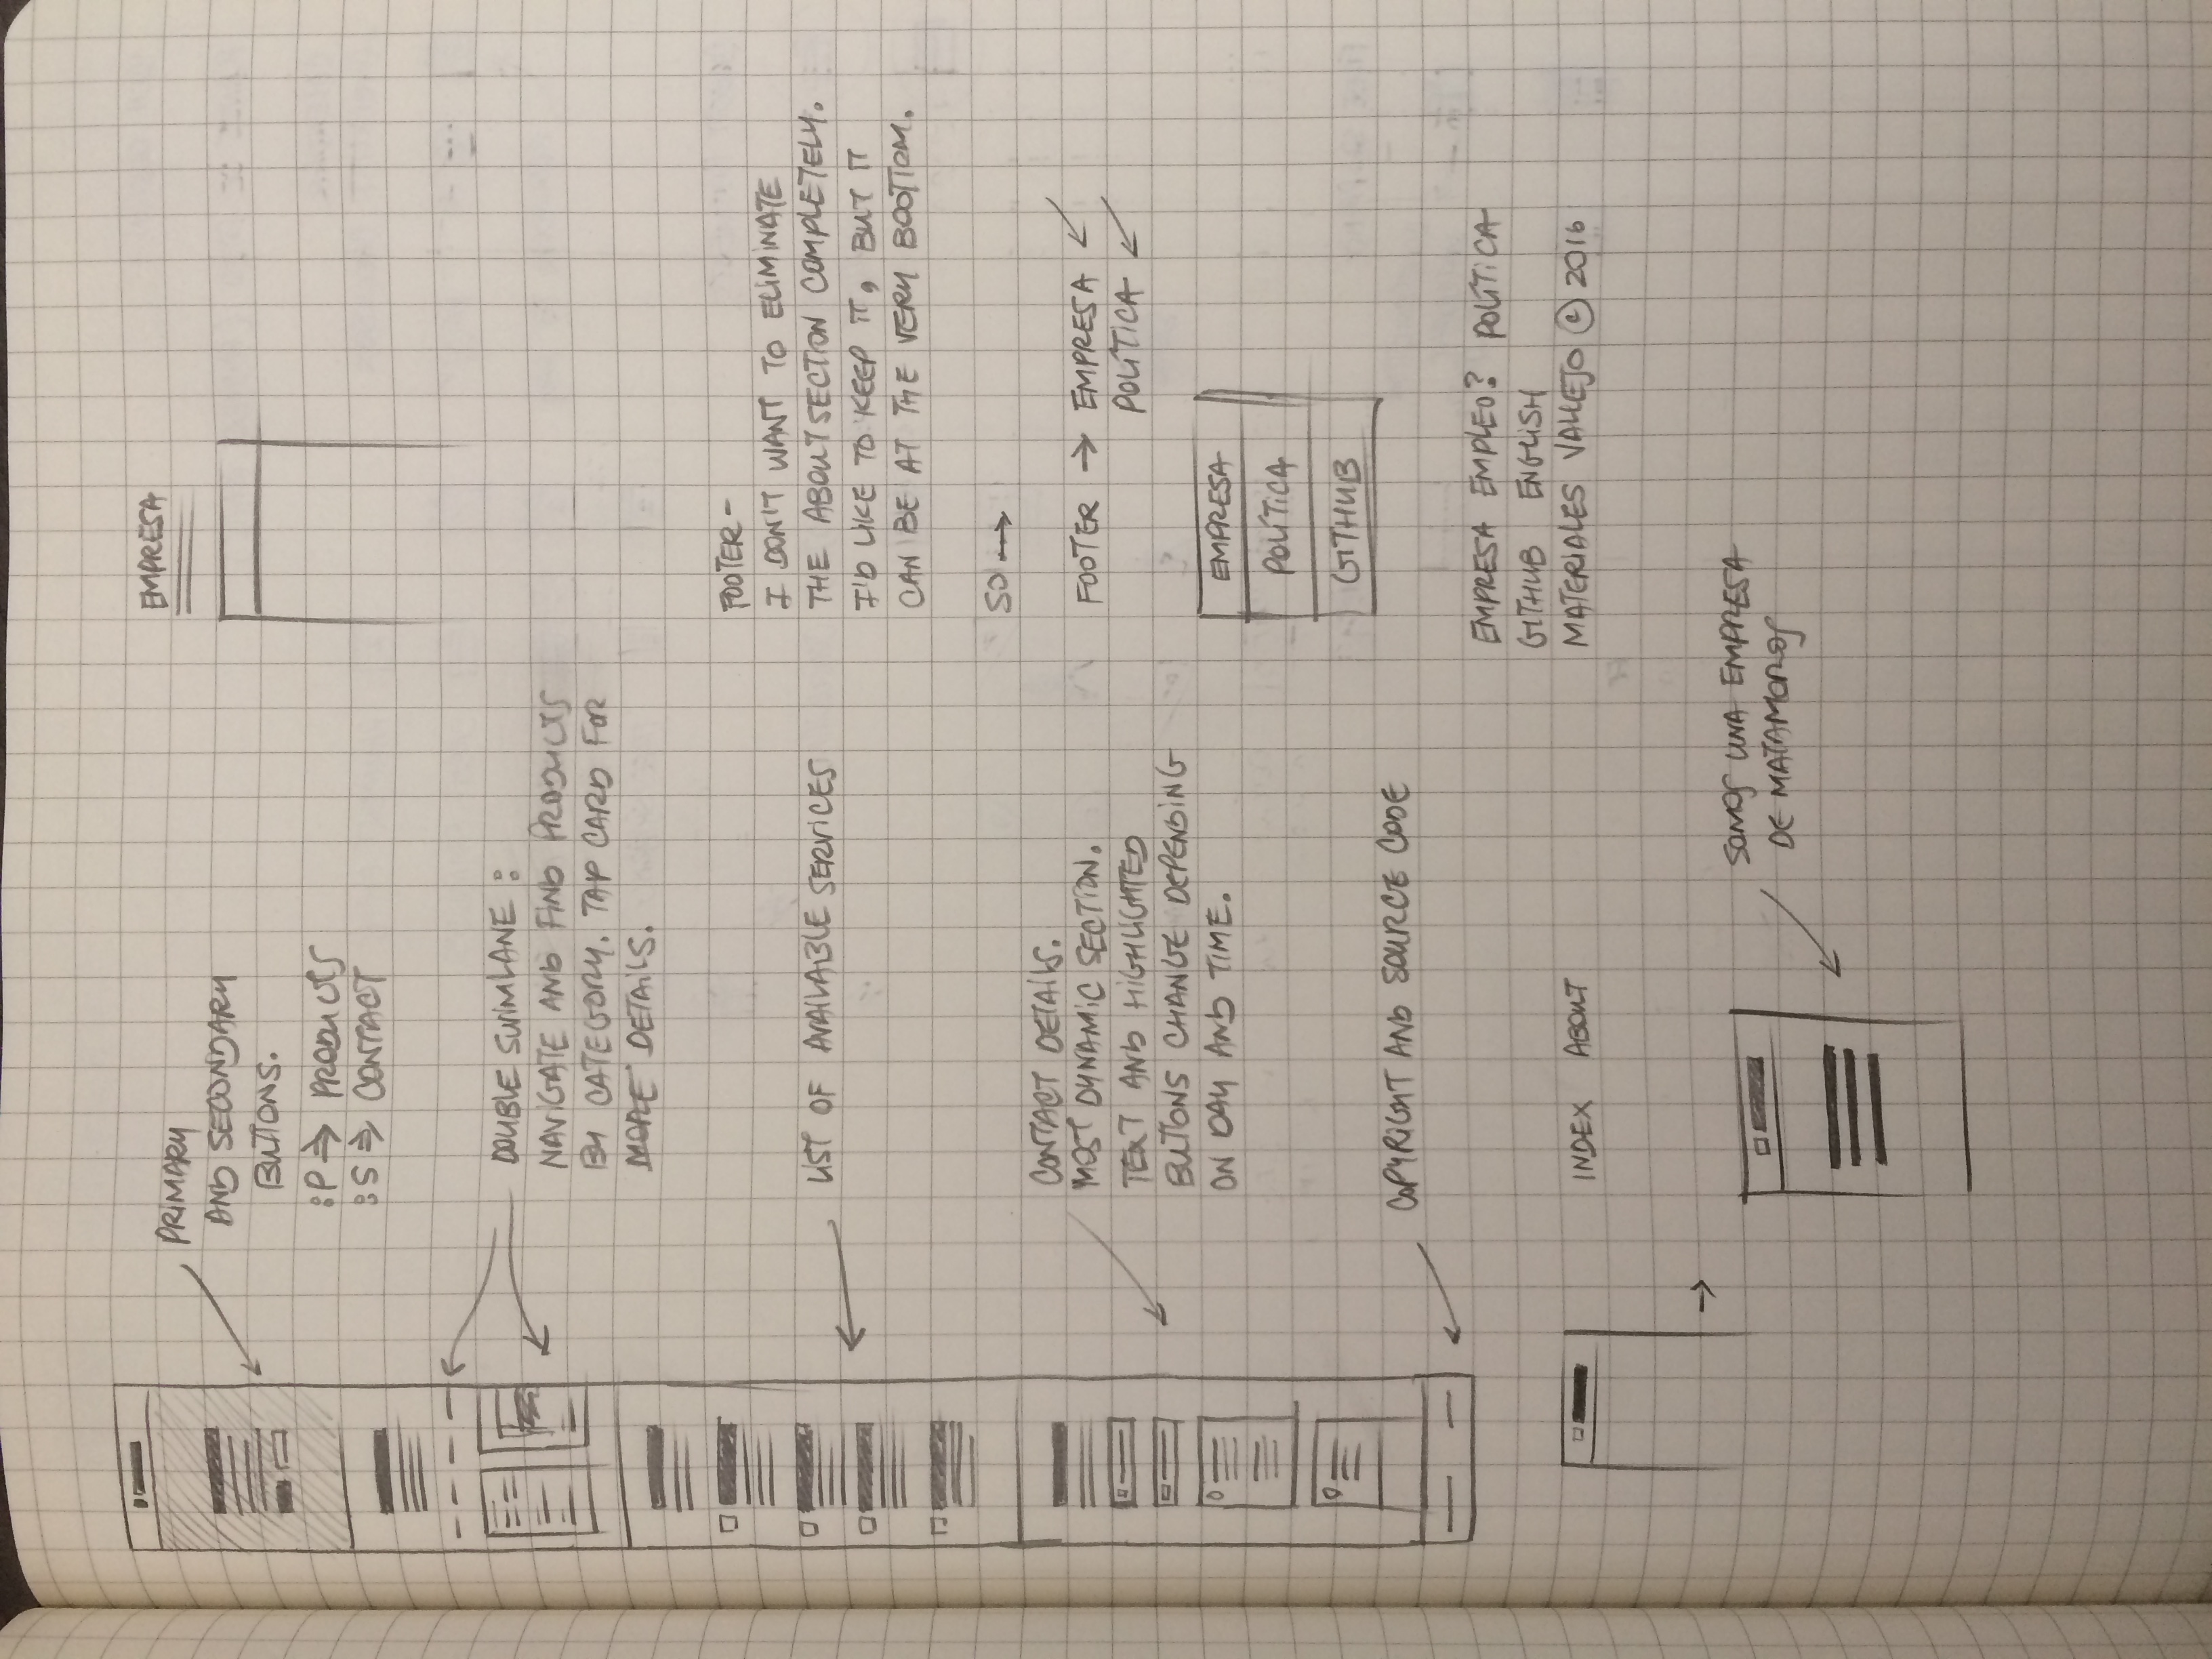 PRIMARY
AND SECONDARY
BUTTONS.
:P ⇒ PRODUCTS
:S ⇒ CONTACT
DOUBLE SWIMLANE :
NAVIGATE AND FIND PRODUCTS
BY CATEGORY. TAP CARD FOR
MORE DETAILS.
LIST OF AVAILABLE SERVICES
CONTACT DETAILS.
MOST DYNAMIC SECTION.
TEXT AND HIGHLIGHTED
BUTTONS CHANGE DEPENDING
ON DAY AND TIME.
COPYRIGHT AND SOURCE CODE
INDEX ABOUT
SOMOS UNA EMPRESA
DE MATAMOROS
EMPRESA
FOOTER -
I DON'T WANT TO ELIMINATE
THE ABOUT SECTION COMPLETELY.
I'D LIKE TO KEEP IT, BUT IT
CAN BE AT THE VERY BOOTTOM.
SO →
FOOTER → EMPRESA
POLÍTICA
EMPRESA
POLÍTICA
GITHUB
EMPRESA EMPLEO? POLÍTICA
GITHUB ENGLISH
MATERIALES VALLEJO © 2016